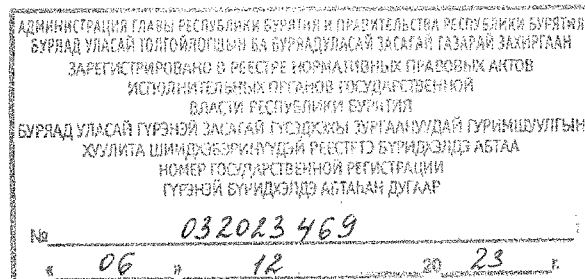 АДМИНИСТРАЦИЯ ГЛАВЫ РЕСПУБЛИКИ БУРЯТИЯ И ПРАВИТЕЛЬСТВА РЕСПУБЛИКИ БУРЯТИЯ
БУРЯАД УЛАСАЙ ТОЛГОЙЛОГШЫН БА БУРЯАД УЛАСАЙ ЗАСАГАЙ ГАЗАРАЙ ЗАХИРГААН
ЗАРЕГИСТРИРОВАНО В РЕЕСТРЕ НОРМАТИВНЫХ ПРАВОВЫХ АКТОВ
ИСПОЛНИТЕЛЬНЫХ ОРГАНОВ ГОСУДАРСТВЕННОЙ
ВЛАСТИ РЕСПУБЛИКИ БУРЯТИЯ
БУРЯАД УЛАСАЙ ГҮРЭНЭЙ ЗАСАГАЙ ГҮСЭДХЭХЫ ЗУРГААНУУДАЙ ГУРИМШУУЛГЫН
ХУУЛИТА ШИИДХЭБЭРИНҮҮДЭЙ РЕЕСТРТЭ БҮРИДХЭЛДЭ АБТАА
НОМЕР ГОСУДАРСТВЕННОЙ РЕГИСТРАЦИИ
ГҮРЭНЭЙ БҮРИДХЭЛДЭ АБТАҺАН ДУГААР
№ 032023469
« 06 » 12 20 23 г.